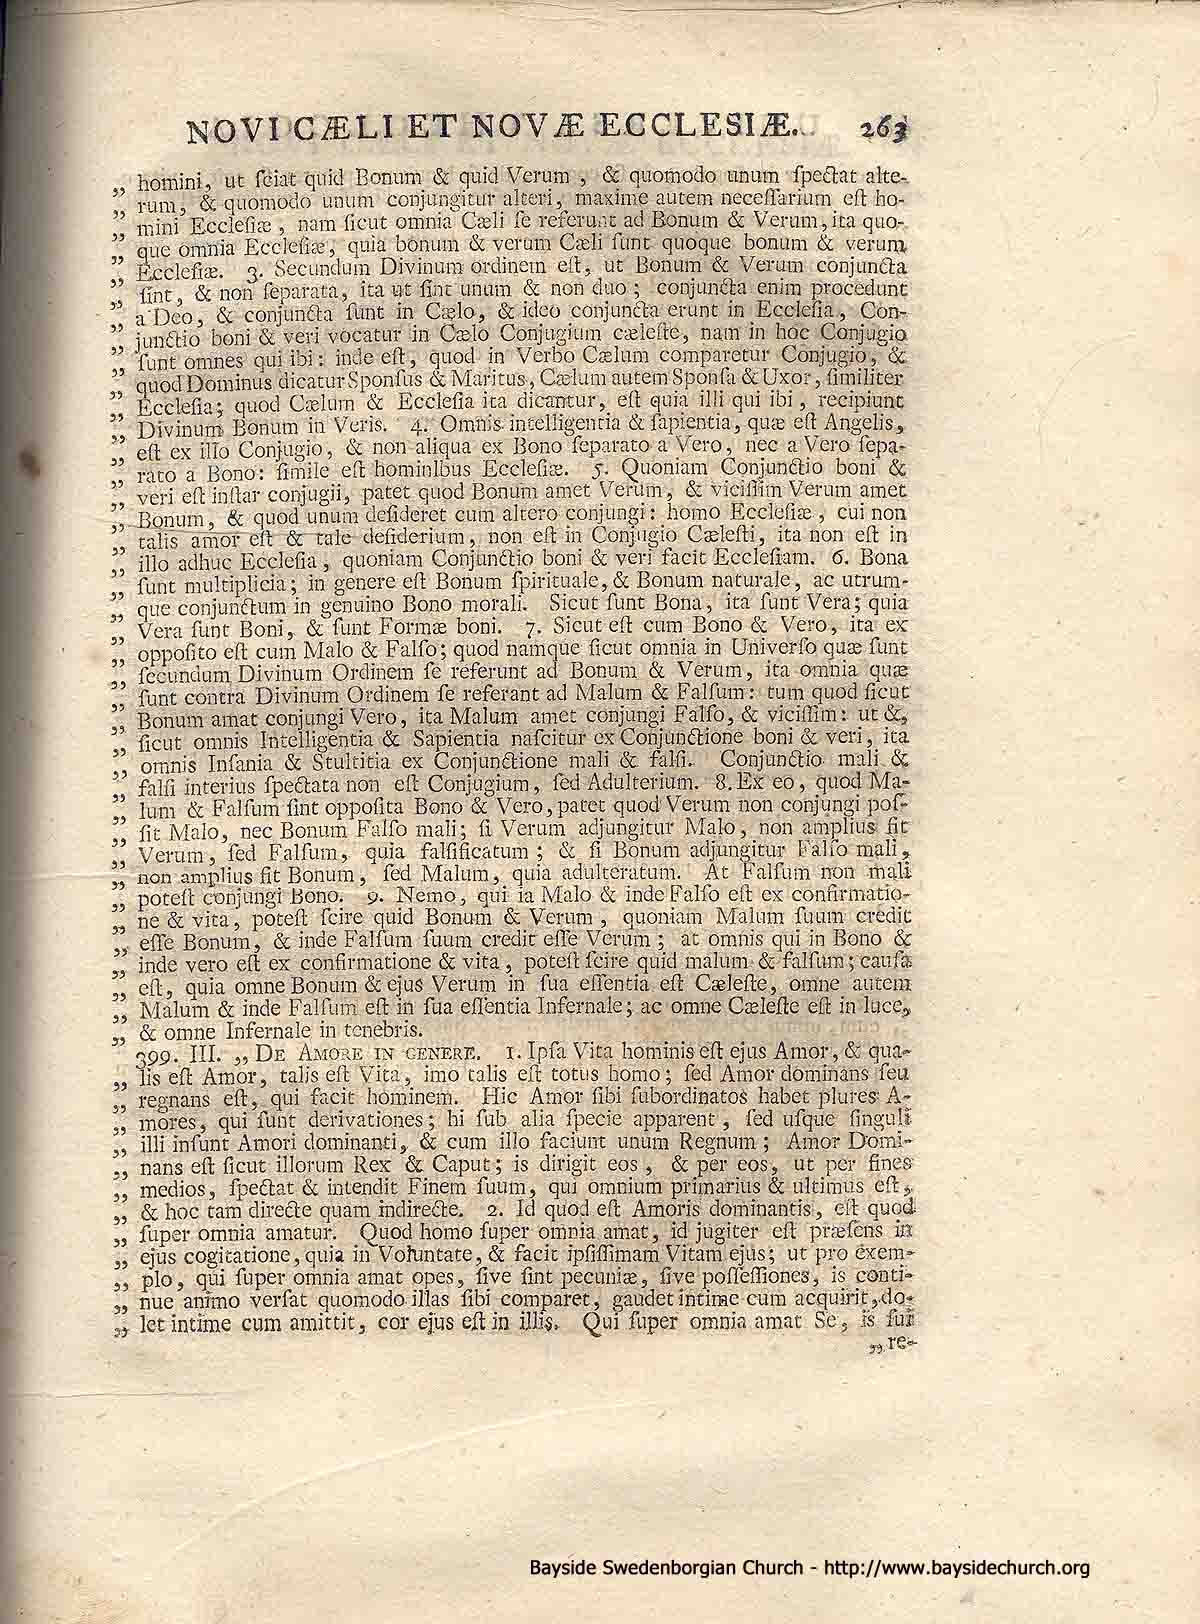 NOVI CÆLI ET NOVÆ ECCLESIÆ. 263
„ homini, ut ſciat quid Bonum & quid Verum , & quomodo unum ſpectat alte-
„ rum, & quomodo unum conjungitur alteri, maxime autem neceſſarium eſt ho-
„ mini Eccleſiæ , nam ſicut omnia Cæli ſe referunt ad Bonum & Verum, ita quo-
„ que omnia Eccleſiæ, quia bonum & verum Cæli ſunt quoque bonum & verum
„ Eccleſiæ. 3. Secundum Divinum ordinem eſt, ut Bonum & Verum conjuncta
„ ſint, & non ſeparata, ita ut ſint unum & non duo ; conjuncta enim procedunt
„ a Deo, & conjuncta ſunt in Cælo, & ideo conjuncta erunt in Eccleſia, Con-
„ junctio boni & veri vocatur in Cælo Conjugium cæleſte, nam in hoc Conjugio
„ ſunt omnes qui ibi : inde eſt, quod in Verbo Cælum comparetur Conjugio, &
„ quod Dominus dicatur Sponſus & Maritus, Cælum autem Sponſa & Uxor, ſimiliter
„ Eccleſia; quod Cælum & Eccleſia ita dicantur, eſt quia illi qui ibi , recipiunt
„ Divinum Bonum in Veris. 4. Omnis intelligentia & ſapientia, quæ eſt Angelis,
„ eſt ex illo Conjugio, & non aliqua ex Bono ſeparato a Vero, nec a Vero ſepa-
„ rato a Bono: ſimile eſt hominlbus Eccleſiæ. 5. Quoniam Conjunctio boni &
„ veri eſt inſtar conjugii, patet quod Bonum amet Verum, & viciſſim Verum amet
„ Bonum, & quod unum deſideret cum altero conjungi : homo Eccleſiæ , cui non
„ talis amor eſt & tale deſiderium, non eſt in Conjugio Cæleſti, ita non eſt in
„ illo adhuc Eccleſia , quoniam Conjunctio boni & veri facit Eccleſiam. 6. Bona
„ ſunt multiplicia; in genere eſt Bonum ſpirituale, & Bonum naturale, ac utrum-
„ que conjunctum in genuino Bono morali. Sicut ſunt Bona, ita ſunt Vera; quia
„ Vera ſunt Boni, & ſunt Formæ boni. 7. Sicut eſt cum Bono & Vero, ita ex
„ oppoſito eſt cum Malo & Falſo; quod namque ſicut omnia in Univerſo quæ ſunt
„ ſecundum Divinum Ordinem ſe referunt ad Bonum & Verum, ita omnia quæ
„ ſunt contra Divinum Ordinem ſe referant ad Malum & Falſum : tum quod ſicut
„ Bonum amat conjungi Vero, ita Malum amet conjungi Falſo, & viciſſim: ut &,
„ ſicut omnis Intelligentia & Sapientia naſcitur ex Conjunctione boni & veri, ita
„ omnis Inſania & Stultitia ex Conjunctione mali & falſi. Conjunctio mali &
„ falſi interius ſpectata non eſt Conjugium, ſed Adulterium. 8. Ex eo, quod Ma-
„ lum & Falſum ſint oppoſita Bono & Vero, patet quod Verum non conjungi poſ-
„ ſit Malo, nec Bonum Falſo mali; ſi Verum adjungitur Malo, non amplius fit
„ Verum, ſed Falſum, quia falſificatum ; & ſi Bonum adjungitur Falſo mali,
„ non amplius fit Bonum, ſed Malum, quia adulteratum. At Falſum non mali
„ poteſt conjungi Bono. 9. Nemo, qui ia Malo & inde Falſo eſt ex confirmatio-
„ ne & vita, poteſt ſcire quid Bonum & Verum , quoniam Malum ſuum credit
„ eſſe Bonum, & inde Falſum ſuum credit eſſe Verum ; at omnis qui in Bono &
„ inde vero eſt ex confirmatione & vita , poteſt ſcire quid malum & falſum; cauſa
„ eſt, quia omne Bonum & ejus Verum in ſua eſſentia eſt Cæleſte, omne autem
„ Malum & inde Falſum eſt in ſua eſſentia Infernale; ac omne Cæleſte eſt in luce,
„ & omne Infernale in tenebris.
399. III. „ DE AMORE IN GENERE. 1. Ipſa Vita hominis eſt ejus Amor, & qua-
„ lis eſt Amor, talis eſt Vita, imo talis eſt totus homo ; ſed Amor dominans ſeu
„ regnans eſt, qui facit hominem. Hic Amor ſibi ſubordinatos habet plures A-
„ mores, qui ſunt derivationes; hi ſub alia ſpecie apparent, ſed uſque ſinguli
„ illi inſunt Amori dominanti, & cum illo faciunt unum Regnum ; Amor Domi-
„ nans eſt ſicut illorum Rex & Caput; is dirigit eos , & per eos, ut per fines
„ medios, ſpectat & intendit Finem ſuum, qui omnium primarius & ultimus eſt,
„ & hoc tam directe quam indirecte. 2. Id quod eſt Amoris dominantis, eſt quod
„ ſuper omnia amatur. Quod homo ſuper omnia amat, id jugiter eſt præſens in
„ ejus cogitatione, quia in Voluntate, & facit ipſiſſimam Vitam ejus; ut pro exem-
„ plo, qui ſuper omnia amat opes, ſive ſint pecuniæ, ſive poſſeſſiones, is conti-
„ nue animo verſat quomodo illas ſibi comparet, gaudet intime cum acquirit, do-
„ let intime cum amittit, cor ejus eſt in illis. Qui ſuper omnia amat Se, is ſui
„ re-
Bayside Swedenborgian Church - http://www.baysidechurch.org